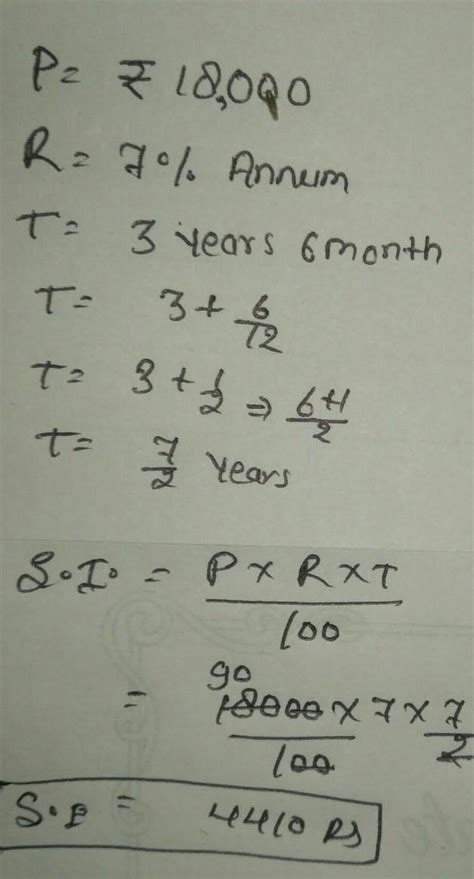 P= ₹ 18,000
R= 7% Annum
T= 3 years 6 month
T= 3 + 6/12
T= 3 + 1/2 ⇒ 6+1/2
T= 7/2 Years
S.I. = P × R × T / 100
90
= 18000 × 7 × 7/2 / 100
S.I = 4410 Rs